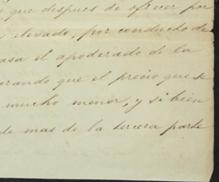 que despues de ofrecer por
elevado, por conducto de
casa el apoderado de la
rando que el precio que se
mucho menor, y si bien
de mas de la tercera parte